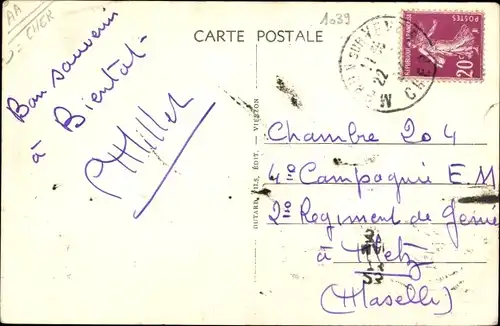 AA
CHER
1039
CARTE POSTALE
POSTES
20c
CHER
Bon souvenir
à Bientôt
Millet
DUTARD, FILS, ÉDIT. - VIERZON
Chambre 204
4ie Campagnie E M
2ie Regiment de Génie
à Metz
(Maselle)